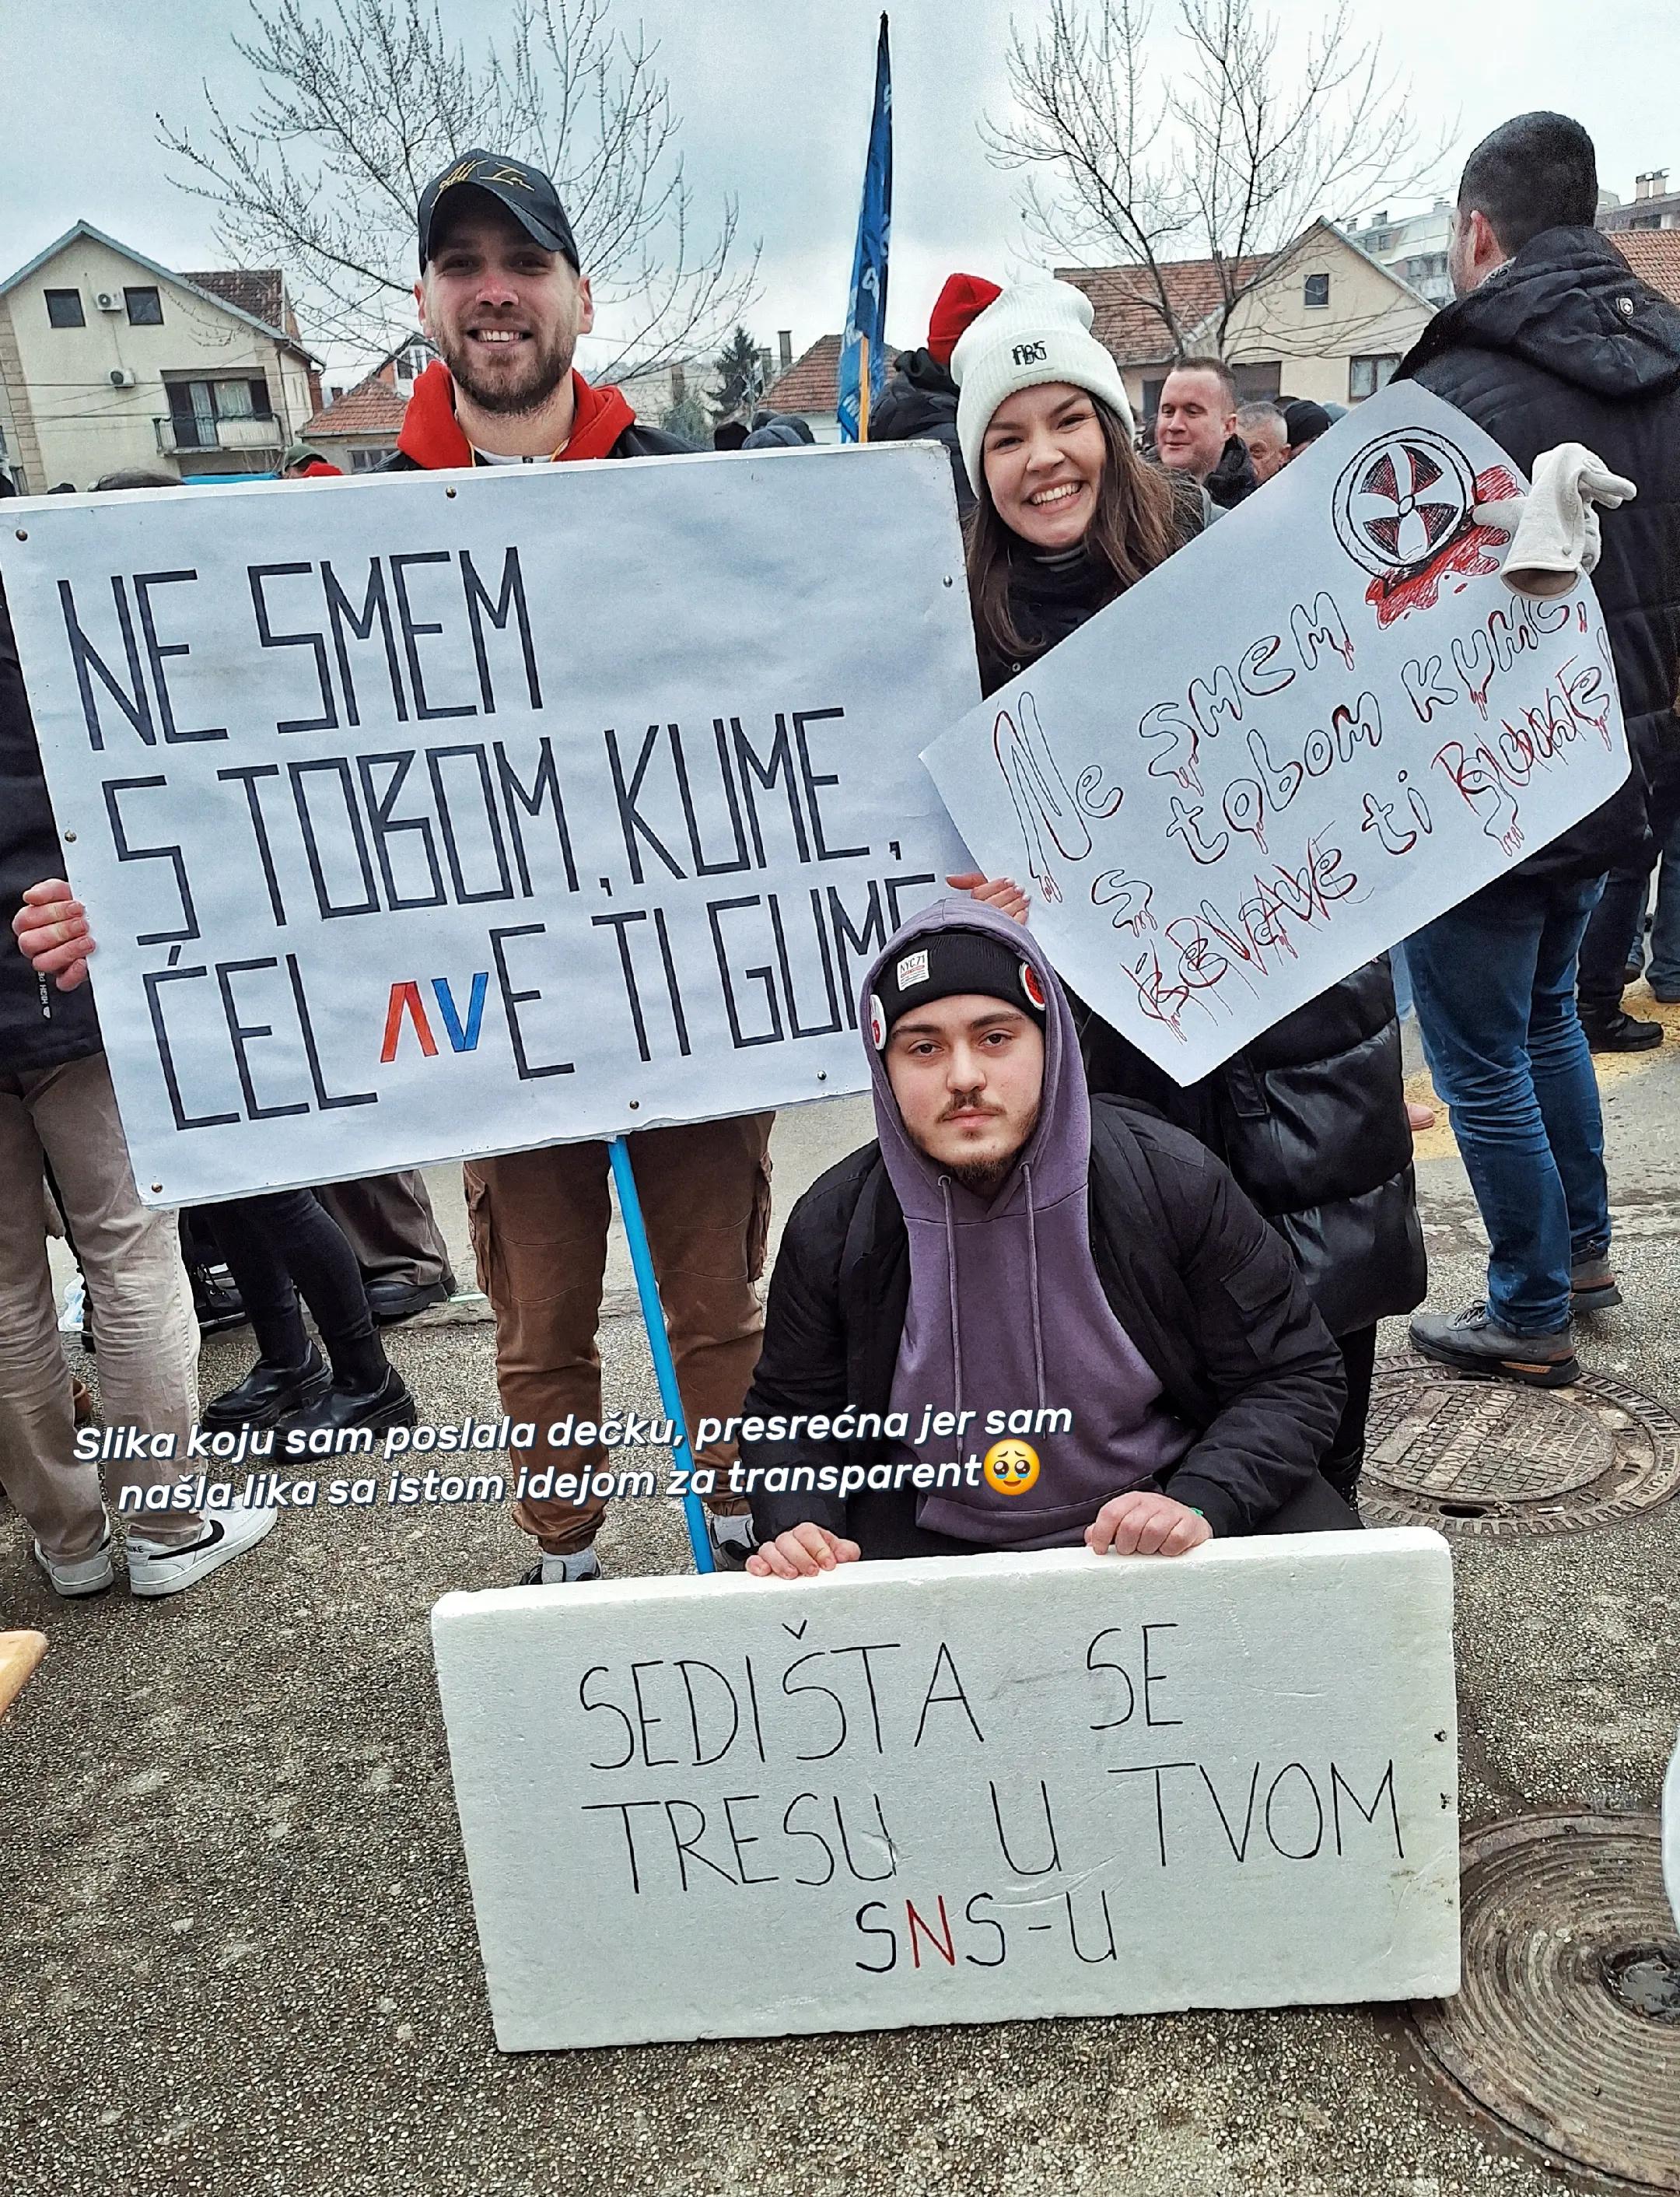 All In
NE SMEM
S TOBOM, KUME,
ĆELAVE TI GUME
Ne smem
s tobom kume,
ti
NYC71
Slika koju sam poslala dečku, presrećna jer sam
našla lika sa istom idejom za transparent🥹
SEDIŠTA SE
TRESU U TVOM
SNS-U